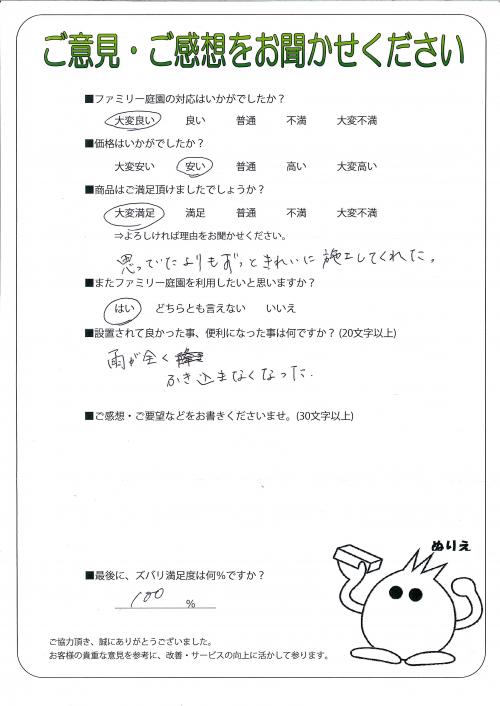 ご意見・ご感想をお聞かせください
■ファミリー庭園の対応はいかがでしたか？
大変良い 良い 普通 不満 大変不満
■価格はいかがでしたか？
大変安い 安い 普通 高い 大変高い
■商品はご満足頂けましたでしょうか？
大変満足 満足 普通 不満 大変不満
⇒よろしければ理由をお聞かせください。
思っていたよりもずっときれいに施工してくれた。
■またファミリー庭園を利用したいと思いますか？
はい どちらとも言えない いいえ
■設置されて良かった事、便利になった事は何ですか？(20文字以上)
雨が全く
ふき込まなくなった.
■ご感想・ご要望などをお書きくださいませ。(30文字以上)
ぬりえ
■最後に、ズバリ満足度は何％ですか？
100 ％
ご協力頂き、誠にありがとうございました。
お客様の貴重な意見を参考に、改善・サービスの向上に活かして参ります。